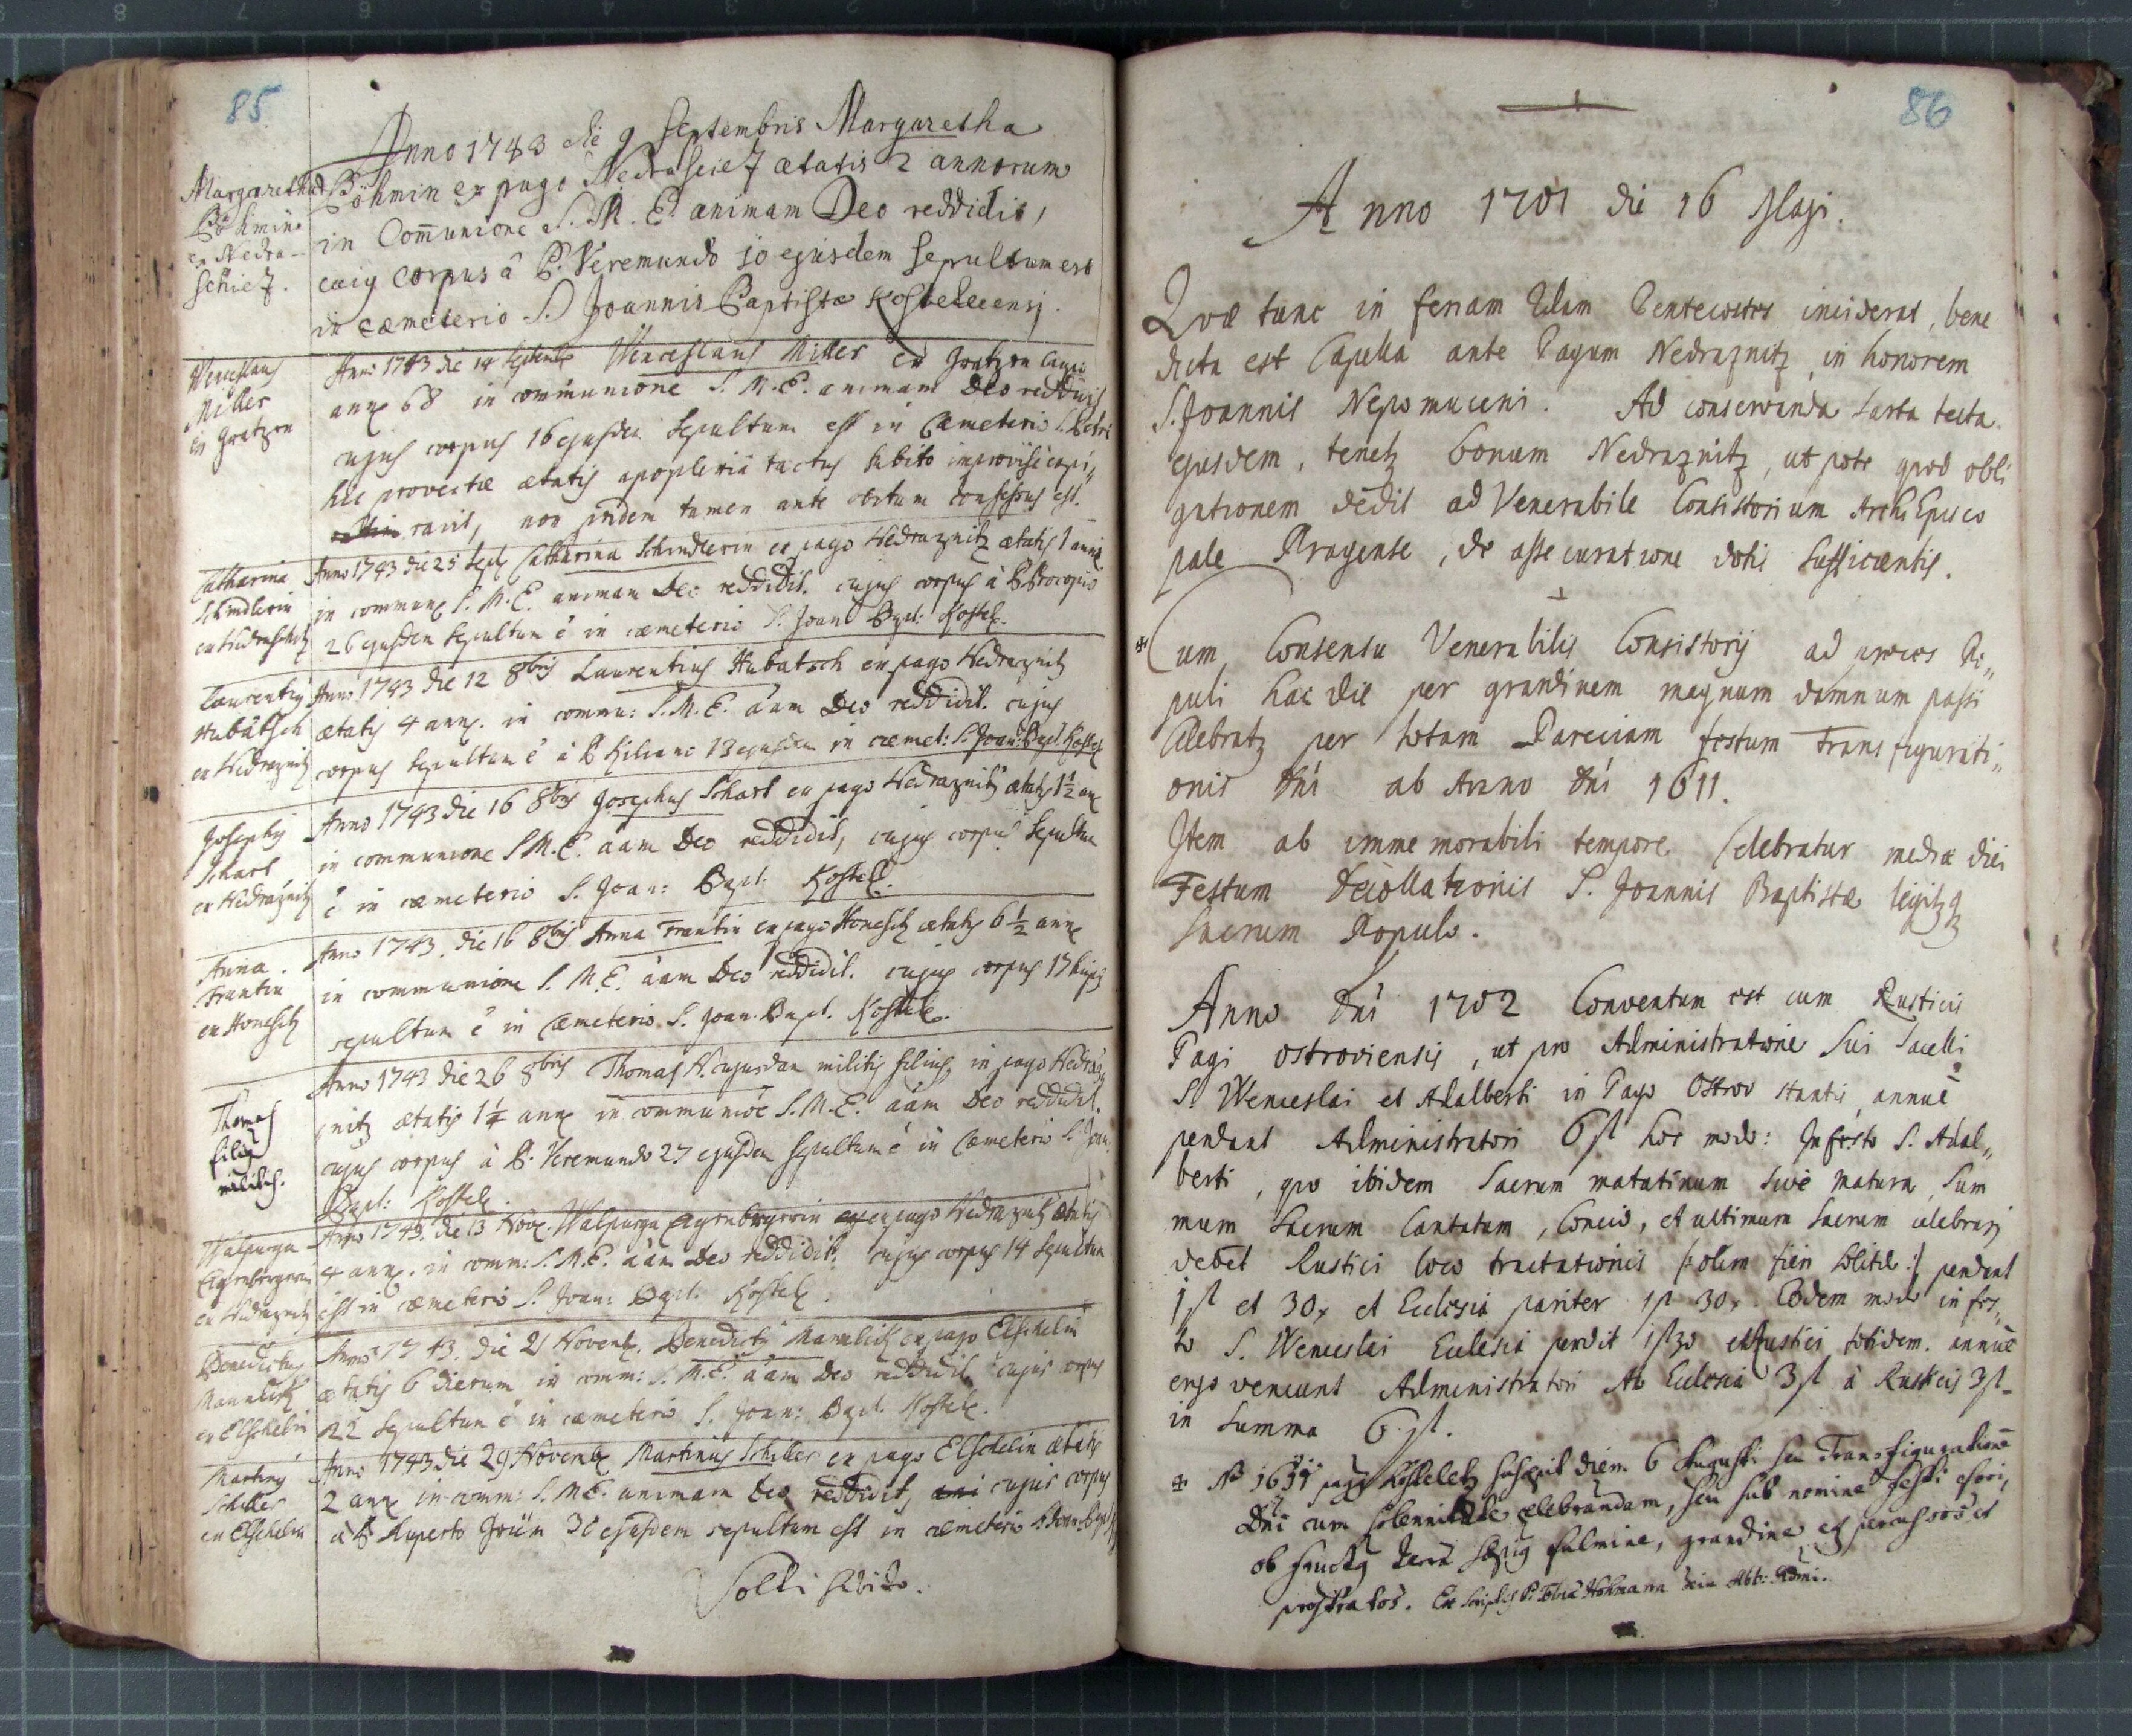 85
Anno 1743 die 9 Septembris Margaretha
Böhmin ex pago Nedraschez ætatis 2 annorum
in Com̄unione S. M. E. animam Deo reddidit,
corpus â P. Veremundo 10 ejusdem sepultum est
in cæmeterio S. Joannis Baptistæ Kostelecensj.
Margaretha
Böhmin
ex Nedra-
schiez.
Anno 1743 die 14 Septemb Wenceslaus Miller ex Gratzen
ann 68 in communione S. M. E. animam Deo reddidit
cujus corpus 16 ejusdem sepultum est in Cæmeterio S. Petri
hic provectæ ætatis apoplexiâ tactus subito
ravit, non pridem tamen ante obitum confessus est.
Wenceslaus
Miller
ex Gratzen
Anno 1743 die 25 Sept Catharina Schindlerin ex pago Nedraznitz ætatis 1
in commun S. M. E. animam Deo reddidit. cujus corpus à P. Procopio
26 ejusdem sepultum ē in cæmeterio S. Joan Bapt: Kostel.
Catharina
Schindlerin
Anno 1743 die 12 8bris Laurentius Hubatsch ex pago Nedraznitz
ætatis 4 ann. in commu: S. M. E. āam Deo reddidit. cujus
corpus sepultum ē à P. Kiliano 13 ejusdem in cæmet: S. Joan: Bapt. Kostel
Laurentiy
Hubatsch
ex Nedraznitz
Anno 1743 die 16 8bris Josephus Schart ex pago Nedraznitz ætatis 1½ an
in communione S. M. E. āam Deo reddidit, cujus corpus sepultum
ē in cæmeterio S. Joan: Bapt: Kostel.
Josephy
Schart
ex Nedraznitz
Anno 1743. die 16 8bris Anna Frantin ex pago Honesitz ætatis 6½ ann
in communione S. M. E. āam Deo reddidit. cujus corpus 17 hujus
sepultum ē in Cæmeterio S. Joan. Bapt. Kostel.
Anna
Frantin
ex Honesitz
Anno 1743 die 26 8bris Thomas N. cujusdam militis filius, in pago Nedraz-
nitz ætatis 1¼ ann in communiōe S. M. E. āam Deo reddidit.
cujus corpus à P. Veremundo 27 ejusdem sepultum ē in Cæmeterio S. Joan.
Bapt: Kostel.
Thomas
filiy
militis.
Anno 1743. die 13 Nov. Walpurga ex pago Nedraznitz ætatis
4 ann. in comm: S. M. E. āam Deo reddidit. cujus corpus 14 sepultum
est in cæmeterio S. Joan: Bapt: Kostel.
Walpurga
ex Nedraznitz
Anno 1743. die 21 Novemb. Benedicty Mannlick ex pago Elschelin
ætatis 6 dierum in comm: S. M. E. āam Deo reddidit cujus corpus
22 sepultum ē in cæmeterio S. Joan: Bapt. Kostel.
Benedictus
Mannlick
ex Elschelin
Anno 1743 die 29 Novemb Martinus Schiller ex pago Elschelin ætatis
2 ann in comm: S. M. E. animam Deo reddidit, cujus corpus
à P. Ruperto Grün 30 ejusdem sepultum est in cæmeterio S. Joan Bapt
Martiny
Schiller
ex Elschelin
86
Anno 1701 die 16 Maji.
Quæ tunc in feriam 2dam Pentecostes inciderat, bene
dicta est Capella ante Pagum Nedraznitz, in honorem
S. Joannis Nepomuceni. Ad conservanda sarta tecta
ejusdem, tenetz bonum Nedraznitz, ut pote quod obli
gationem dedit ad Venerabile Consistorium Archi Episco
pale Pragense, de assecuratione dotis sufficientis.
Cum Consensu Venerabilis Consistorij ad preces Po,,
puli hac die per grandinem magnum damnum passi
Celebratz per totam Parœciam festum Transfigurati,,
onis Dn̄i ab Anno Dn̄i 1611.
Item ab imme morabili tempore Celebratur media diei
Festum Decollationis S. Joannis Baptistæ
Sacrum Populo.
Anno Dn̄i 1702 Conventum est cum Rusticis
Pagi ostroviensis, ut pro Administratione sui Sacelli
S. Wenceslai et Adalberti in Pago Ostrov stantis, annuē
pendant Administratori 6 fl hoc modo: In festo S. Adal,,
berti, quo ibidem Sacrum matutinum sive matura, Sum
mum Sacrum Cantatum, Concio, et ultimum Sacrum celebrari
debet Rustici loco tractationis /: olim fieri solitæ :/ pendant
1 fl et 30 x et Ecclesia pariter 1 fl 30 x. Eodem modo in fes,,
to S. Wenceslai Ecclesia pendit 1 fl 30 et Rustici totidem. annuē
ergo veniunt Administratori Ab Ecclesia 3 fl à Rusticis 3 fl
in summa 6 fl.
pagy Kosteletz suscepit diem 6 Augusti seu Transfigurationē
Dn̄i cum solennitate celebrandam, seu sub nomine festi
ob fructy terræ sæpiy fulmine, grandine et
prostratos. Ex Scriptis P. Hohmann